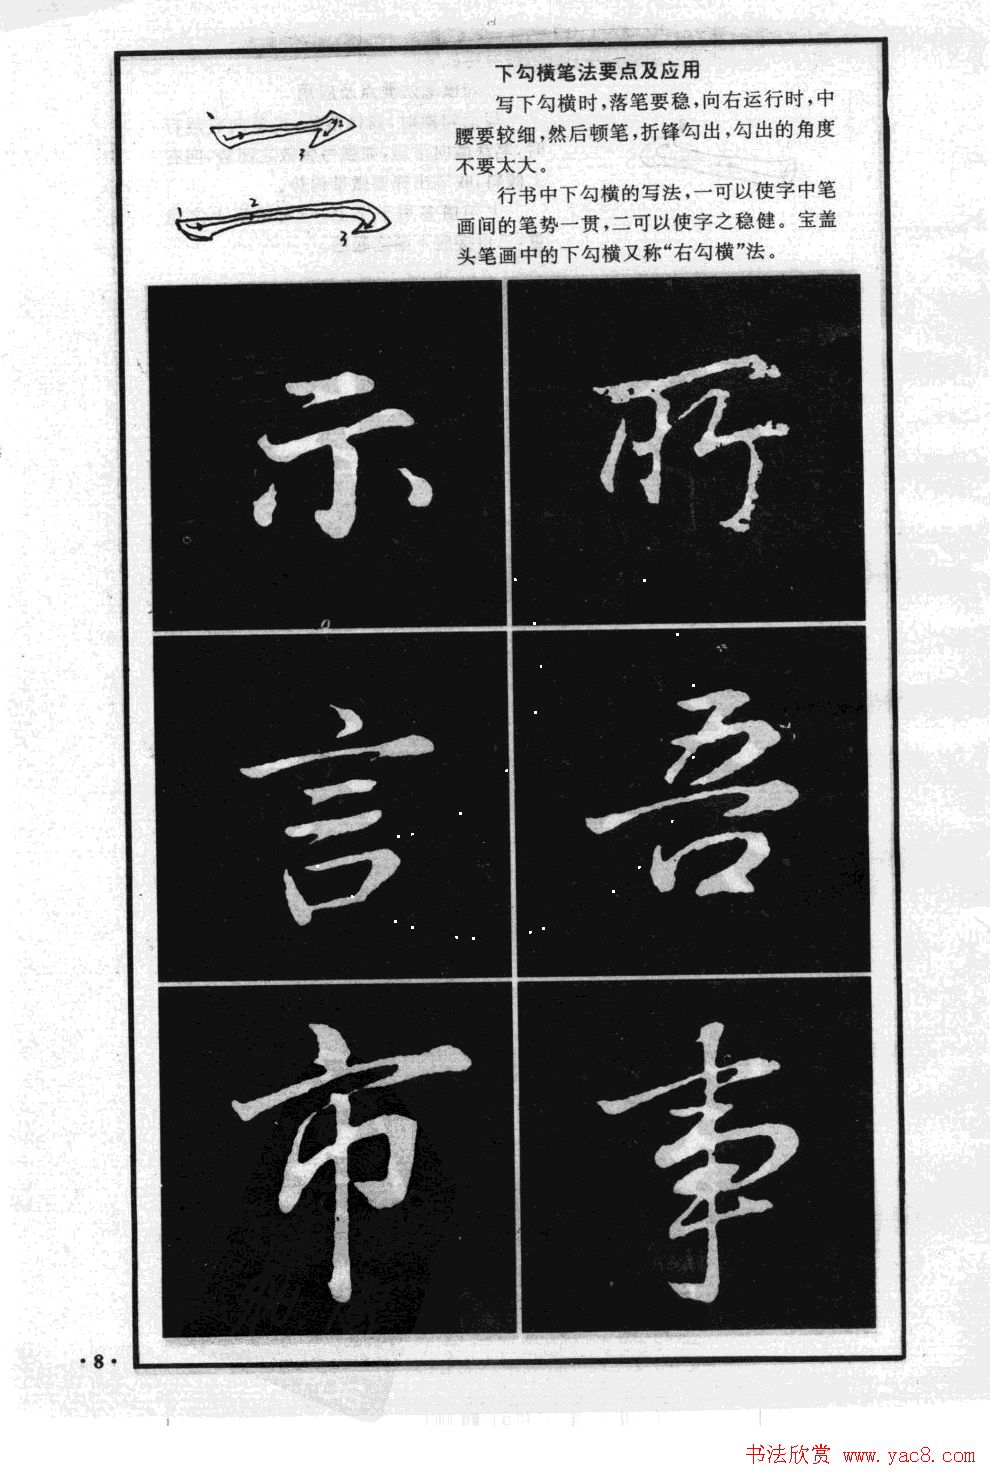 下勾横笔法要点及应用
写下勾横时，落笔要稳，向右运行时，中
腰要较细，然后顿笔，折锋勾出，勾出的角度
不要太大。
行书中下勾横的写法，一可以使字中笔
画间的笔势一贯，二可以使字之稳健。宝盖
头笔画中的下勾横又称“右勾横”法。
1
2
3
1
2
3
示 所
言 吾
市 事
·8·
书法欣赏 www.yac8.com